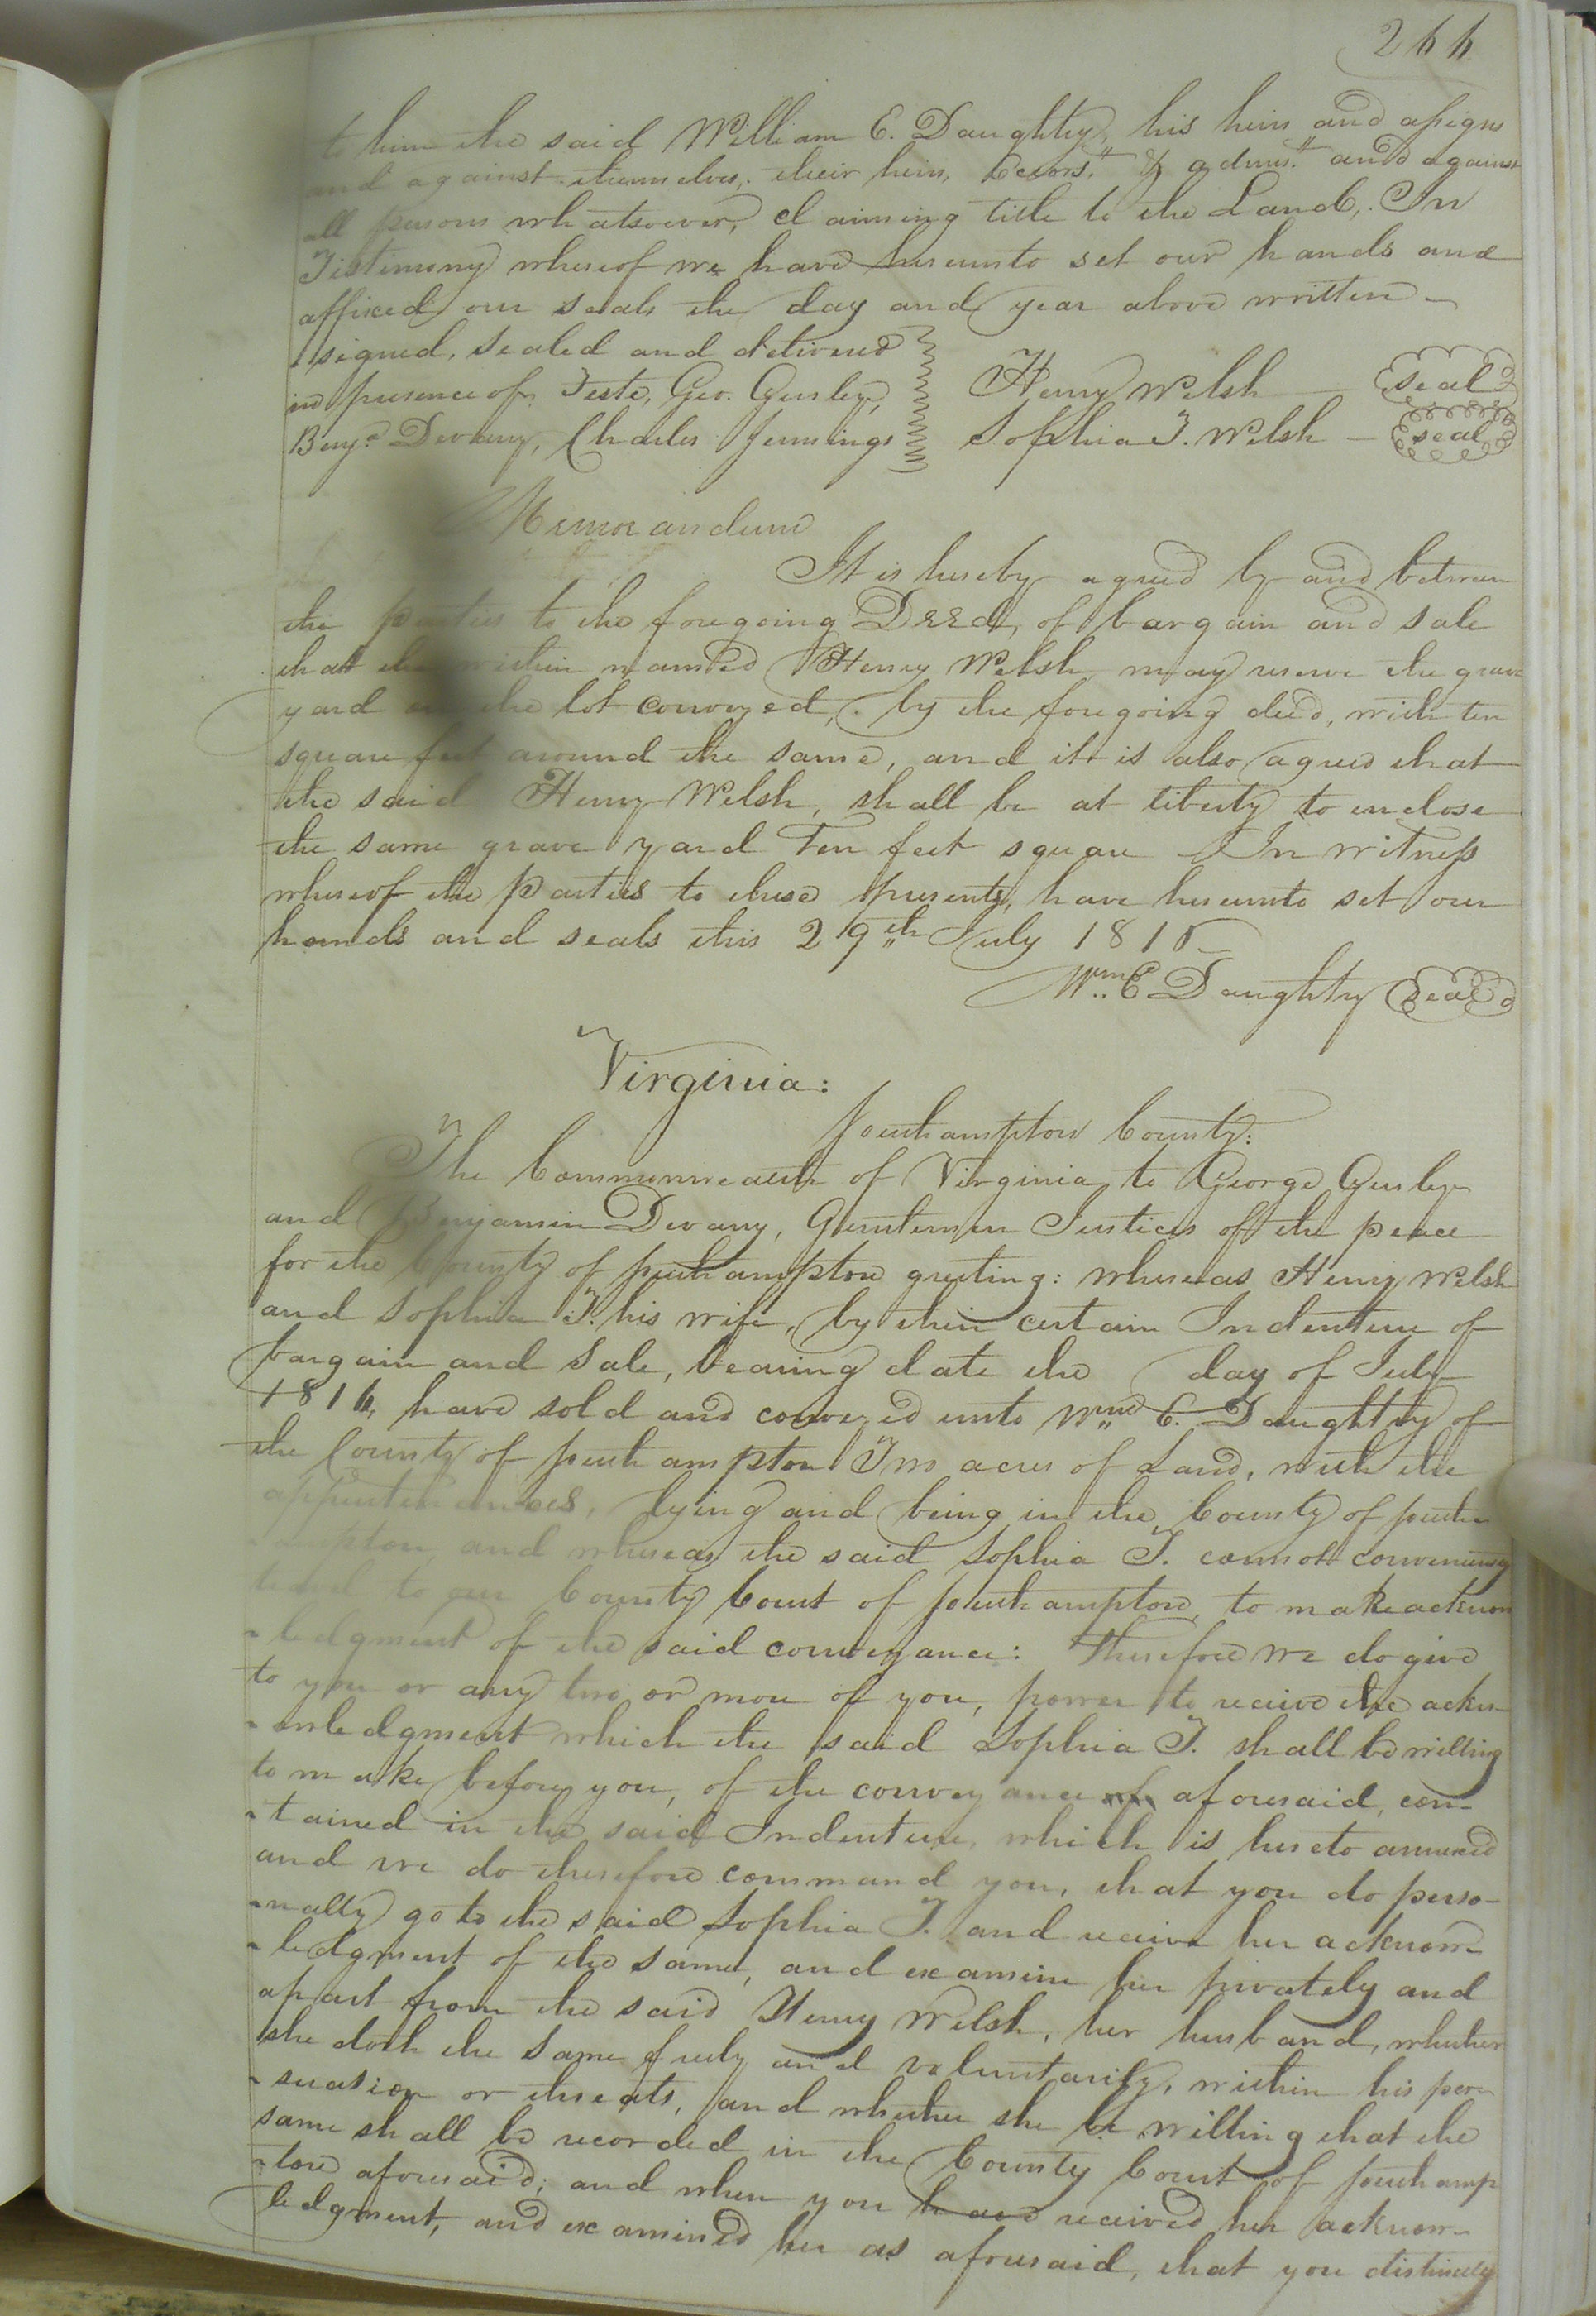 266
to him the said William E. Daughtry, his heirs and assigns
and against themselves, their heirs, Exors. & admrs. and against
all persons whatsoever, claiming title to the Land, In
Testimony whereof we have hereunto set our hands and
affixed our seals the day and year above written
signed, sealed and delivered
in presence of Teste, Geo. Gurley, Henry Welsh seal
Benja. Devany, Charles Jennings Sophia T. Welsh seal
Memorandum
It is hereby agreed by and between
the parties to the foregoing Deed, of bargain and sale
that the within named Henry Welsh may reserve the grave
yard on the lot conveyed, by the foregoing deed, with ten
square feet around the same, and it is also agreed that
the said Henry Welsh, shall be at liberty to enclose
the same grave yard Ten feet square In witness
whereof the parties to these presents, have hereunto set our
hands and seals this 29th July 1816
Wm. E Daughtry Seal
Virginia:
Southampton County:
The Commonwealth of Virginia to George Gurley
and Benjamin Devany, Gentlemen Justices of the peace
for the County of Southampton greeting: whereas Henry Welsh
and Sophia T. his wife, by their certain Indenture of
bargain and sale, bearing date the day of July
1816, have sold and conveyed unto Wm. E. Daughtry of
the County of Southampton Two acres of Land, with the
appurtenances, lying and being in the County of Southa
-mpton and whereas the said Sophia T. cannot conveniently
to our County Court of Southampton, to make acknow
-ledgment of the said conveyance: Therefore we do give
to you or any two or more of you, power to receive the ackn-
-owledgment which the said Sophia T. shall be willing
to make before you, of the conveyance aforesaid, con-
-tained in the said Indenture, which is hereto annexed
and we do therefore command you, that you do perso-
-nally go to the said Sophia T. and receive her acknow-
-ledgment of the same, and examine her privately and
apart from the said Henry Welsh, her husband, whether
she doth the same freely and voluntarily, within his per-
-suasion or threats, and whether she be willing that the
same shall be recorded in the County Court of Southamp
-ton aforesaid; and when you have received her acknow-
ledgment, and examined her as aforesaid, that you distinctly